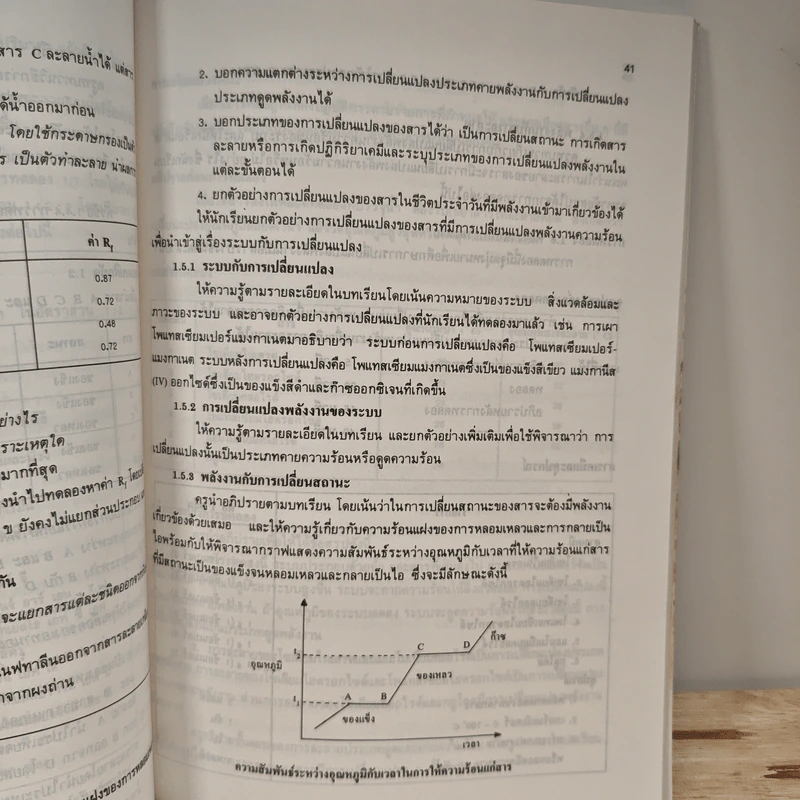 สาร C ละลายน้ำได้ แต่สาร
ด้น้ำออกมาก่อน
โดยใช้กระดาษกรองเป็นตัว
เป็นตัวทำละลาย
ค่า Rf
0.87
0.72
0.48
0.72
อย่างไร
ราะเหตุใด
มากที่สุด
งนำไปทดลองหาค่า Rf
ข ยังคงไม่แยกส่วนประกอบ
กัน
จะแยกสารแต่ละชนิดออกจากกัน
นฟทาลีนออกจากสารละลาย
กจากผงถ่าน
41
2. บอกความแตกต่างระหว่างการเปลี่ยนแปลงประเภทคายพลังงานกับการเปลี่ยนแปลง
ประเภทดูดพลังงานได้
3. บอกประเภทของการเปลี่ยนแปลงของสารได้ว่า เป็นการเปลี่ยนสถานะ การเกิดสาร
ละลายหรือการเกิดปฏิกิริยาเคมีและระบุประเภทของการเปลี่ยนแปลงพลังงานใน
แต่ละขั้นตอนได้
4. ยกตัวอย่างการเปลี่ยนแปลงของสารในชีวิตประจำวันที่มีพลังงานเข้ามาเกี่ยวข้องได้
ให้นักเรียนยกตัวอย่างการเปลี่ยนแปลงของสารที่มีการเปลี่ยนแปลงพลังงานความร้อน
เพื่อนำเข้าสู่เรื่องระบบกับการเปลี่ยนแปลง
1.5.1 ระบบกับการเปลี่ยนแปลง
ให้ความรู้ตามรายละเอียดในบทเรียนโดยเน้นความหมายของระบบ สิ่งแวดล้อมและ
ภาวะของระบบ และอาจยกตัวอย่างการเปลี่ยนแปลงที่นักเรียนได้ทดลองมาแล้ว เช่น การเผา
โพแทสเซียมเปอร์แมงกาเนตมาอธิบายว่า ระบบก่อนการเปลี่ยนแปลงคือ โพแทสเซียมเปอร์-
แมงกาเนต ระบบหลังการเปลี่ยนแปลงคือ โพแทสเซียมแมงกาเนตซึ่งเป็นของแข็งสีเขียว แมงกานีส
(IV) ออกไซด์ซึ่งเป็นของแข็งสีดำและก๊าซออกซิเจนที่เกิดขึ้น
1.5.2 การเปลี่ยนแปลงพลังงานของระบบ
ให้ความรู้ตามรายละเอียดในบทเรียน และยกตัวอย่างเพิ่มเติมเพื่อใช้พิจารณาว่า การ
เปลี่ยนแปลงนั้นเป็นประเภทคายความร้อนหรือดูดความร้อน
1.5.3 พลังงานกับการเปลี่ยนสถานะ
ครูนำอภิปรายตามบทเรียน โดยเน้นว่าในการเปลี่ยนสถานะของสารจะต้องมีพลังงาน
เกี่ยวข้องด้วยเสมอ และให้ความรู้เกี่ยวกับความร้อนแฝงของการหลอมเหลวและการกลายเป็น
ไอพร้อมกับให้พิจารณากราฟแสดงความสัมพันธ์ระหว่างอุณหภูมิกับเวลาที่ให้ความร้อนแก่สาร
ที่มีสถานะเป็นของแข็งจนหลอมเหลวและกลายเป็นไอ ซึ่งจะมีลักษณะดังนี้
อุณหภูมิ
t2
t1
A
B
C
D
ก๊าซ
ของเหลว
ของแข็ง
เวลา
ความสัมพันธ์ระหว่างอุณหภูมิกับเวลาในการให้ความร้อนแก่สาร